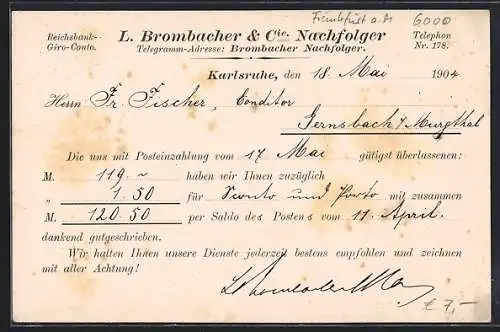 Frankfurt a. M 6000
Reichsbank-Giro-Conto.
L. Brombacher & Cie. Nachfolger
Telegramm-Adresse: Brombacher Nachfolger.
Telephon Nr. 178.
Karlsruhe, den 18. Mai 1904
Herrn Fr. Fischer, Conditor
Gernsbach / Murgthal
Die uns mit Posteinzahlung vom 17 Mai gütigst überlassenen:
M. 119.– haben wir Ihnen zuzüglich
„ 1.50 für Sconto und Porto mit zusammen
M. 120.50 per Saldo des Postens vom 11 April.
dankend gutgeschrieben.
Wir halten Ihnen unsere Dienste jederzeit bestens empfohlen und zeichnen
mit aller Achtung!
€ 7,-